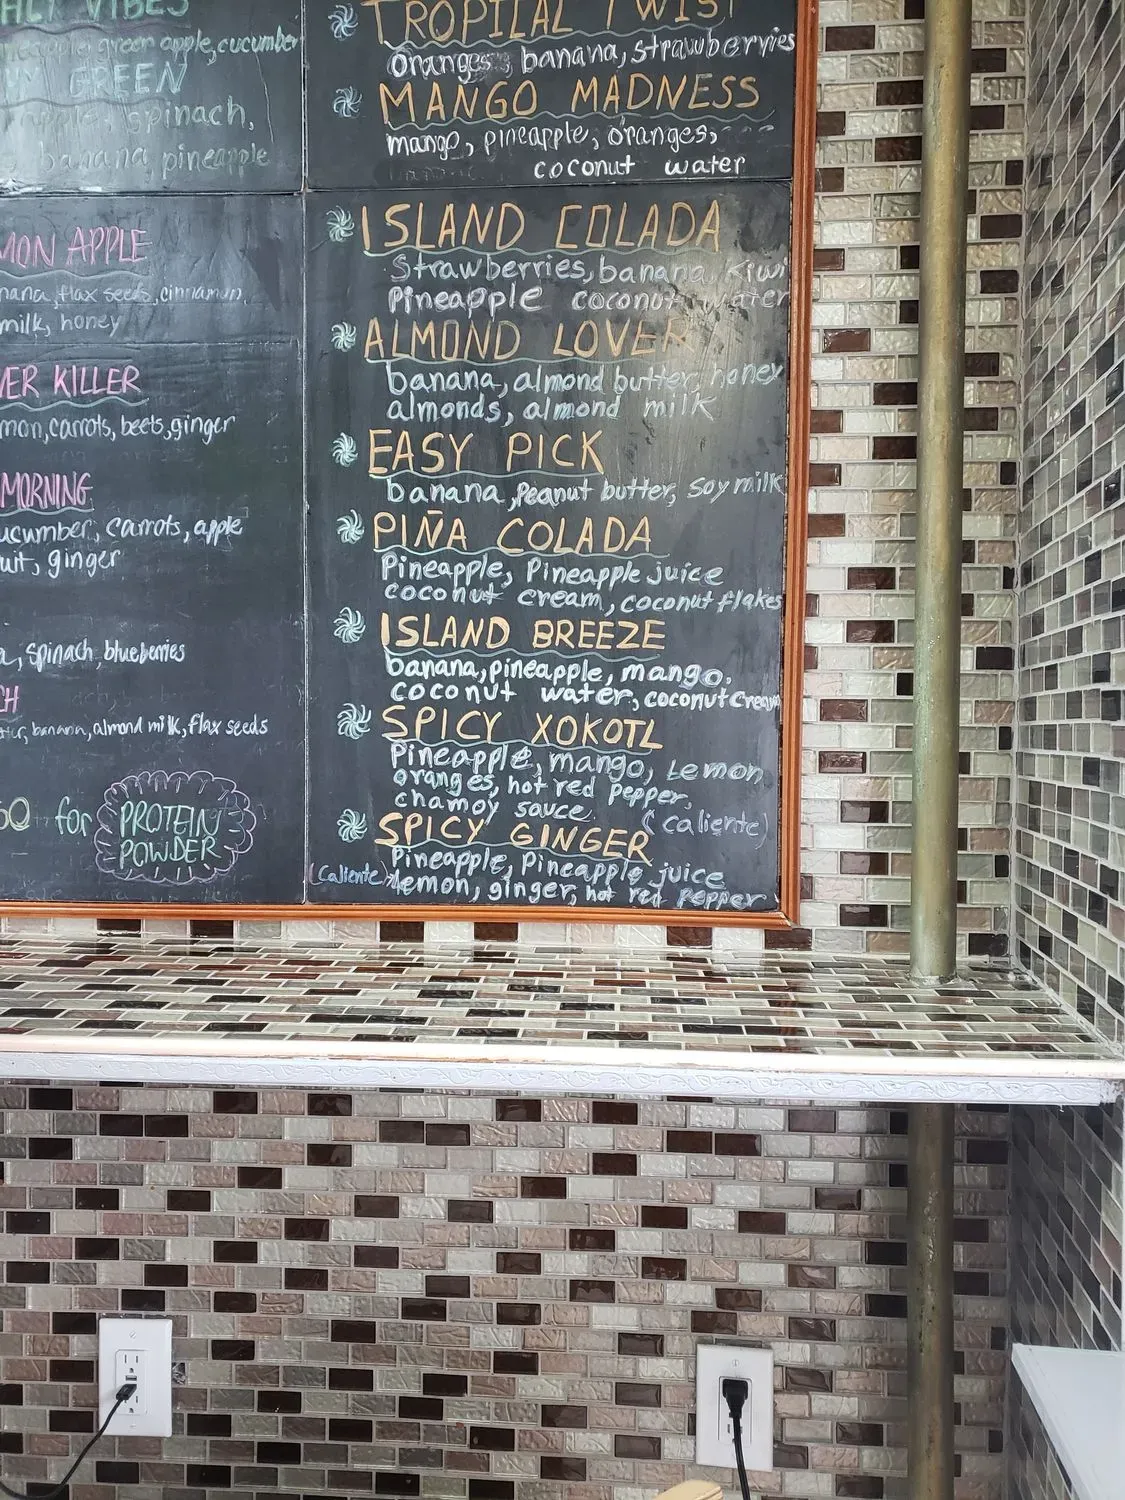 VIBES
pineapple, green apple, cucumber
GREEN
spinach,
banana pineapple
MON APPLE
nana, flax seeds, cinnamon,
milk, honey
VER KILLER
mon, carrots, beets, ginger
MORNING
ucumber, carrots, apple
uit, ginger
a, spinach, blueberries
CH
ter, banana, almond milk, flax seeds
for PROTEIN
POWDER
TROPICAL TWIST
Oranges, banana, strawberryies
MANGO MADNESS
mango, pineapple, oranges,
coconut water
ISLAND COLADA
Strawberries, banana, Kiwi
Pineapple coconut water
ALMOND LOVER
banana, almond butter, honey
almonds, almond milk
EASY PICK
banana, Peanut butter, Soy milk
PIÑA COLADA
Pineapple, Pineapple juice
coconut cream, coconut flakes
ISLAND BREEZE
banana, pineapple, mango,
coconut water, coconut cream
SPICY XOKOTL
Pineapple, mango, Lemon
oranges, hot red pepper,
chamoy sauce. (caliente)
SPICY GINGER
Pineapple, Pineapple juice
(caliente) lemon, ginger, hot red pepper